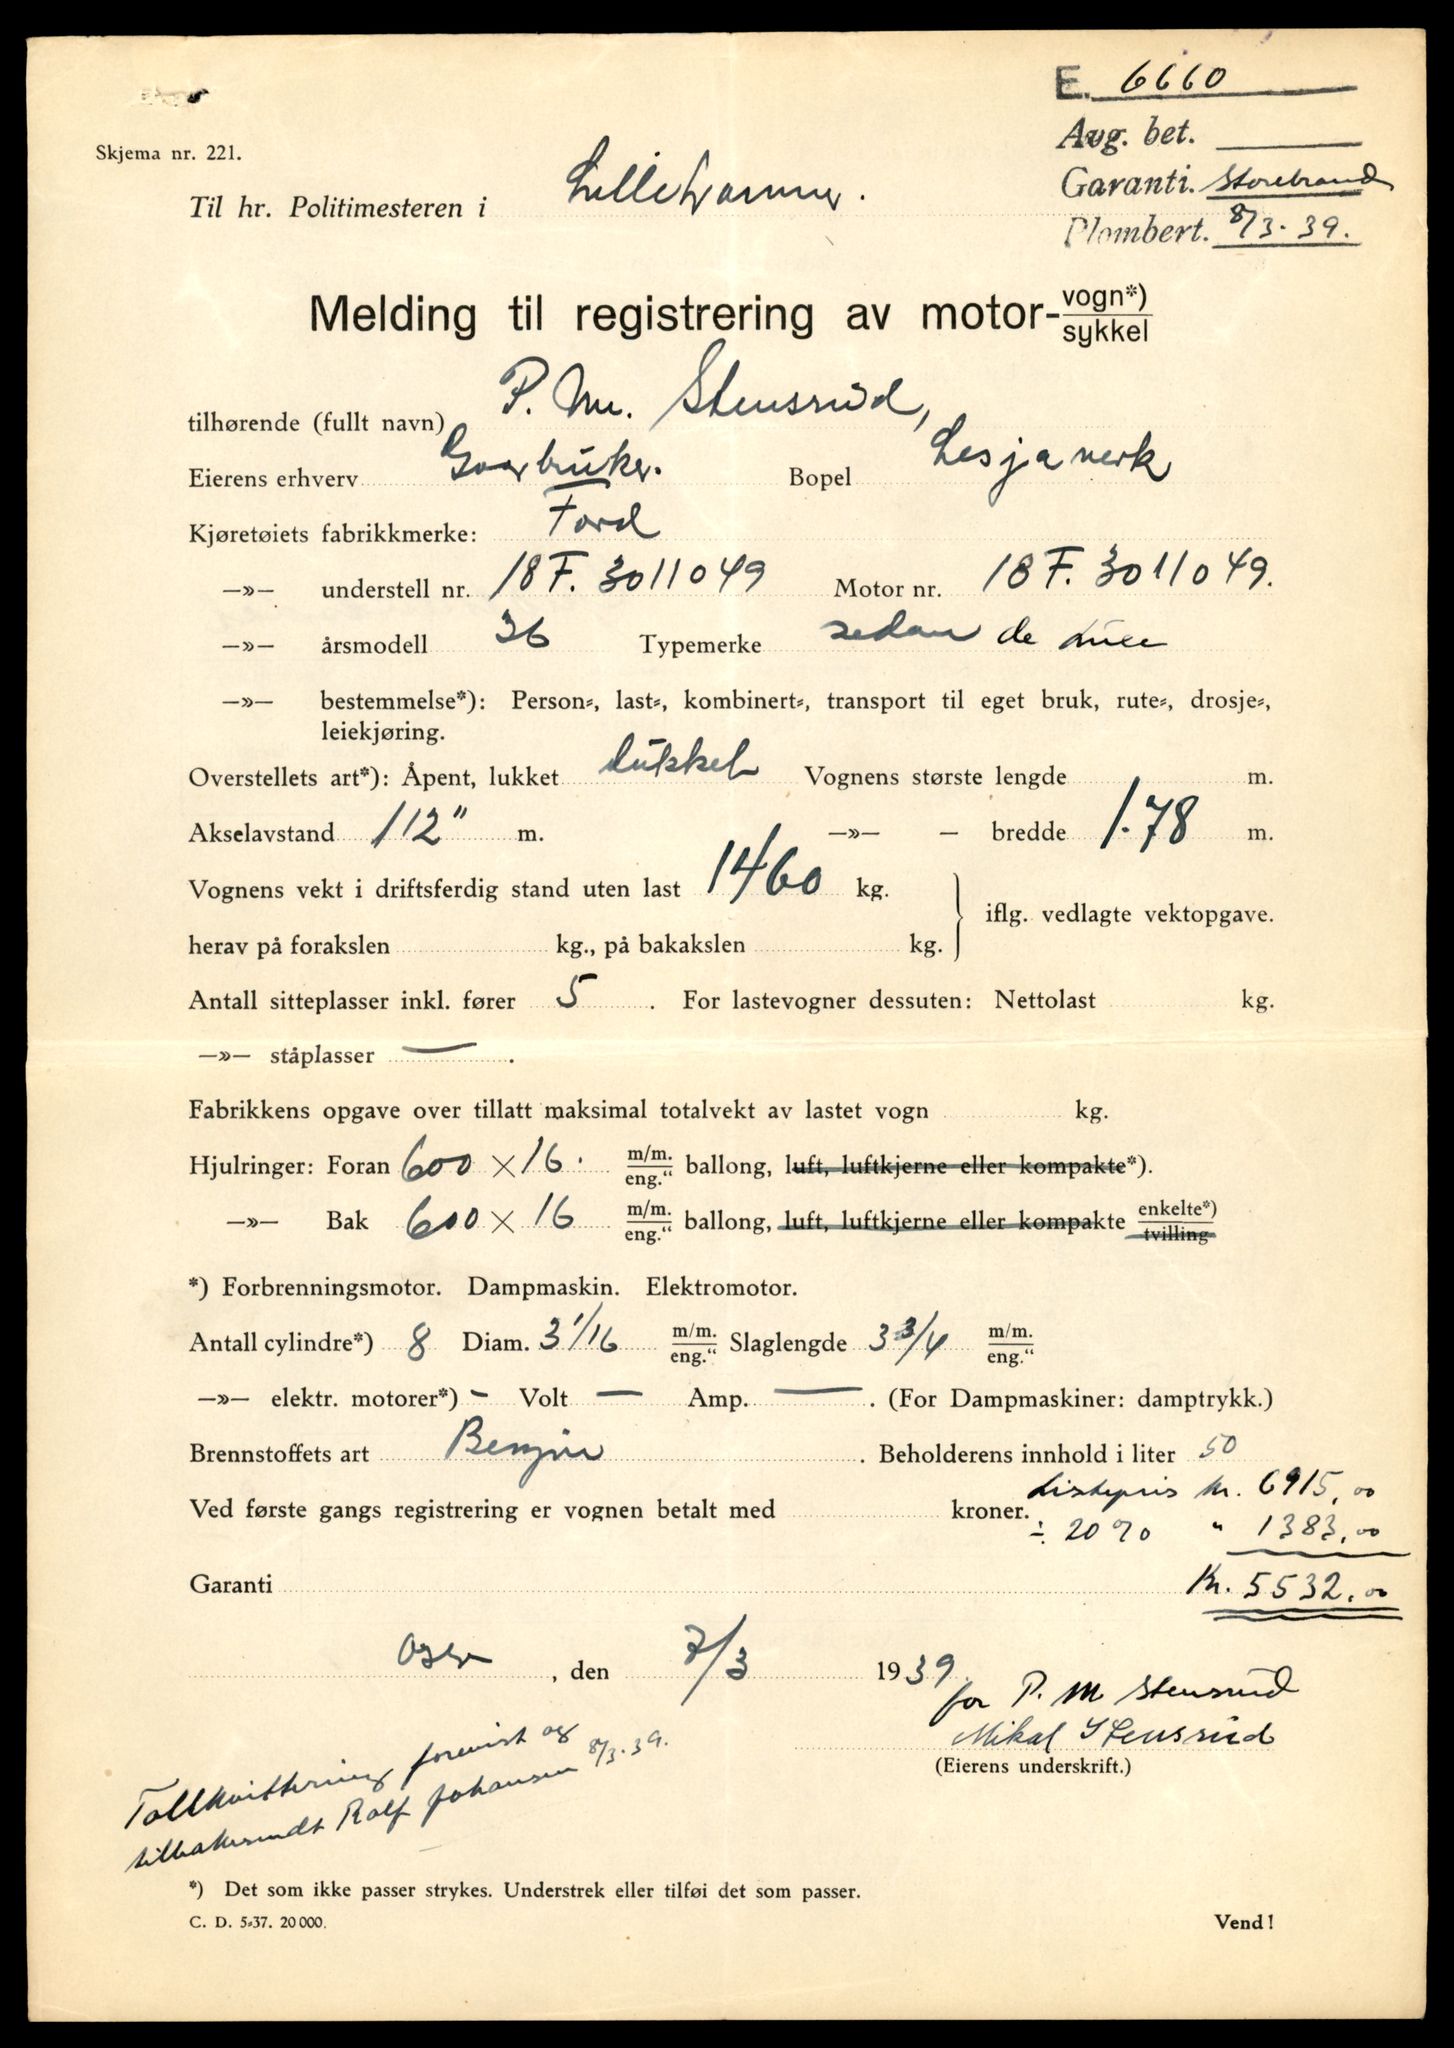 E. 6660
Avg. bet.
Skjema nr. 221.
Garanti. Storebrand
Til hr. Politimesteren i Lillehammer.
Plombert. 8/3.39.
Melding til registrering av motor-vogn*)
sykkel
tilhørende (fullt navn) P. M. Stensrud,
Eierens erhverv Gaarbruker. Bopel Lesjaverk
Kjøretøiets fabrikkmerke: Ford
—»— understell nr. 18 F. 3011049 Motor nr. 18 F. 3011049.
—»— årsmodell 36 Typemerke sedan de luxe
—»— bestemmelse*): Person-, last-, kombinert-, transport til eget bruk, rute-, drosje-,
leiekjøring.
Overstellets art*): Åpent, lukket lukket Vognens største lengde m.
Akselavstand 112" m. —»— — bredde 1.78 m.
Vognens vekt i driftsferdig stand uten last 1460 kg.
iflg. vedlagte vektopgave.
herav på forakslen kg., på bakakslen kg.
Antall sitteplasser inkl. fører 5. For lastevogner dessuten: Nettolast kg.
—»— ståplasser — .
Fabrikkens opgave over tillatt maksimal totalvekt av lastet vogn kg.
Hjulringer: Foran 600 × 16. m/m. eng." ballong, luft, luftkjerne eller kompakte*).
—»— Bak 600 × 16 m/m. eng." ballong, luft, luftkjerne eller kompakte enkelte*) tvilling
*) Forbrenningsmotor. Dampmaskin. Elektromotor.
Antall cylindre*) 8 Diam. 3 1/16 m/m. eng." Slaglengde 3 3/4 m/m. eng."
—»— elektr. motorer*) – Volt — Amp. — . (For Dampmaskiner: damptrykk.)
Brennstoffets art Benzin. Beholderens innhold i liter 50
Listepris kr. 6915,00
Ved første gangs registrering er vognen betalt med kroner.
÷ 20 % " 1383,00
Garanti Kr. 5532,00
Oslo, den 7/3 1939
for P. M Stensrud
Mikal Stensrud
(Eierens underskrift.)
Tollkvittering forevist og
tilbakesendt Rolf Johansen 8/3.39.
*) Det som ikke passer strykes. Understrek eller tilføi det som passer.
C. D. 5-37. 20 000. Vend!